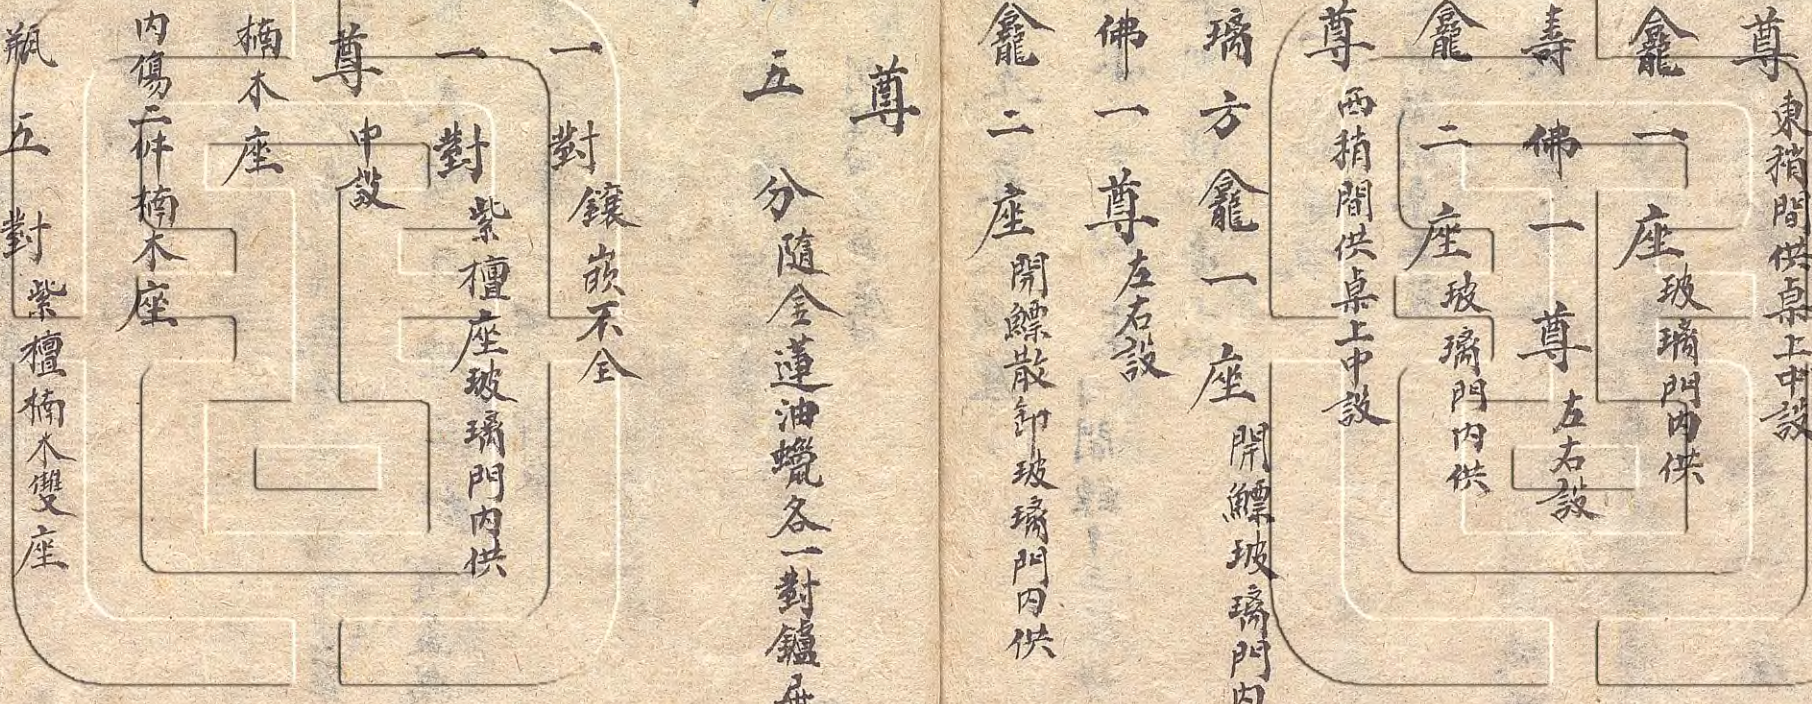 尊東稍間供桌上中設
龕一座玻璃門內供
壽佛一尊左右設
龕二座玻璃門內供
尊西稍間供桌上中設
璃方龕一座開鰾玻璃門內
佛一尊左右設
龕二座開鰾散卸玻璃門內供
尊
五分隨金蓮油蠟各一對鑪
一對鑲嵌不全
一對紫檀座玻璃門內供
尊中設
楠木座
內傷二件楠木座
瓶五對紫檀楠木雙座